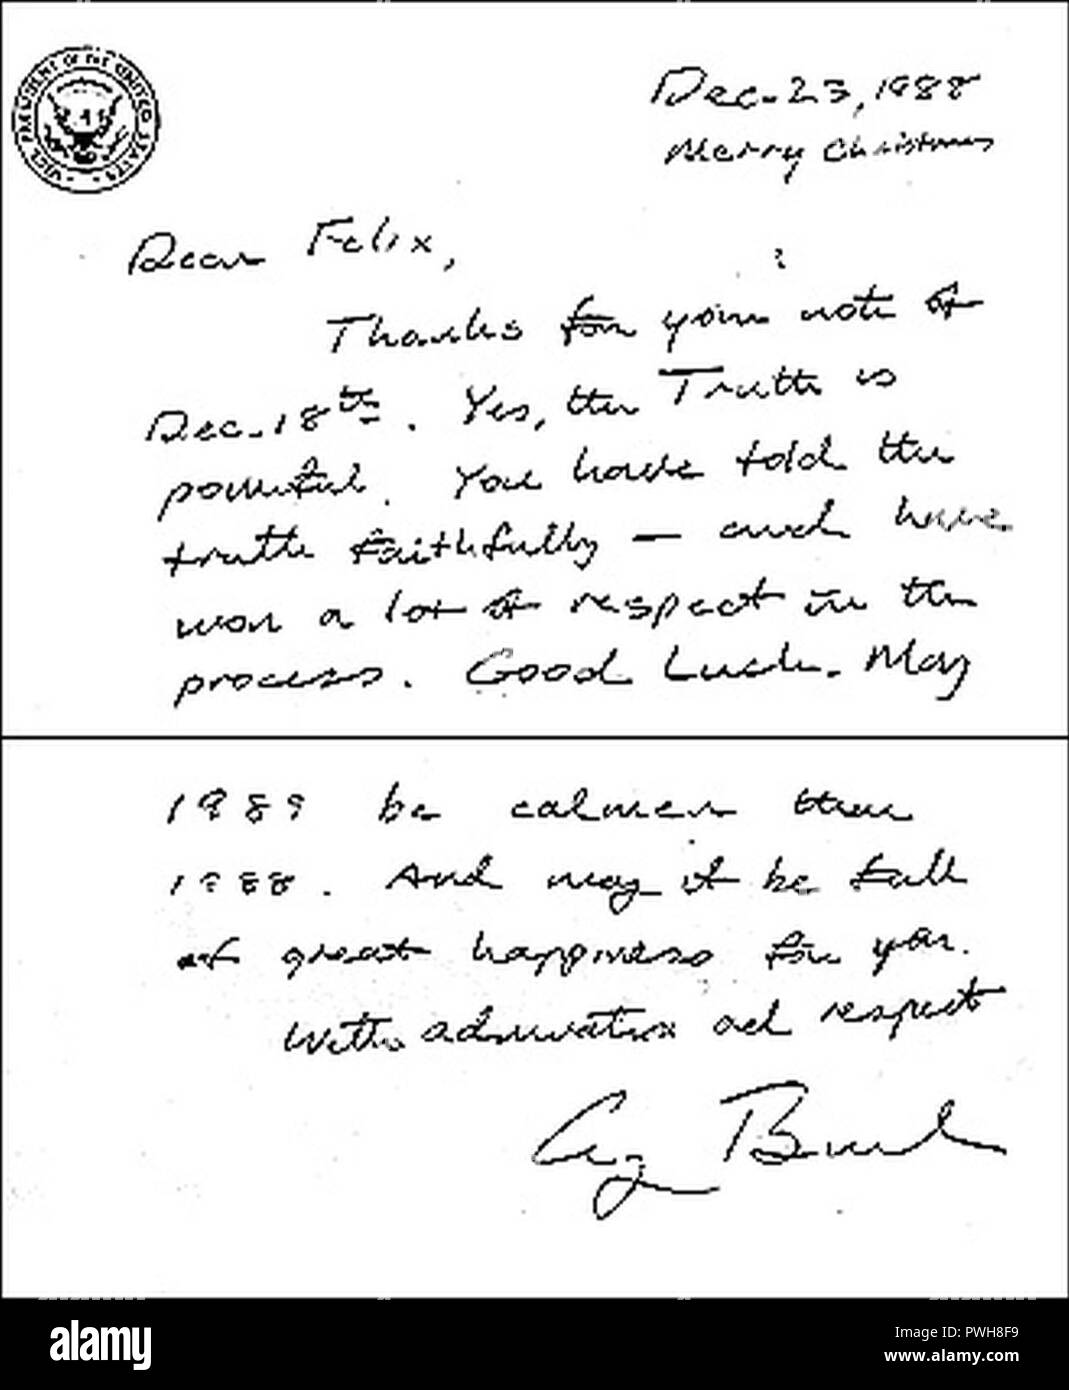 VICE PRESIDENT OF THE UNITED STATES
Dec. 23, 1988
Merry Christmas
Dear Felix,
Thanks for your note of
Dec. 18th. Yes, the Truth is
powerful. You have told the
truth faithfully — and have
won a lot of respect in the
process. Good Luck. May
1989 be calmer than
1988. And may it be full
of great happiness for you.
With admiration and respect
George Bush
alamy
Image ID: PWH8F9
www.alamy.com